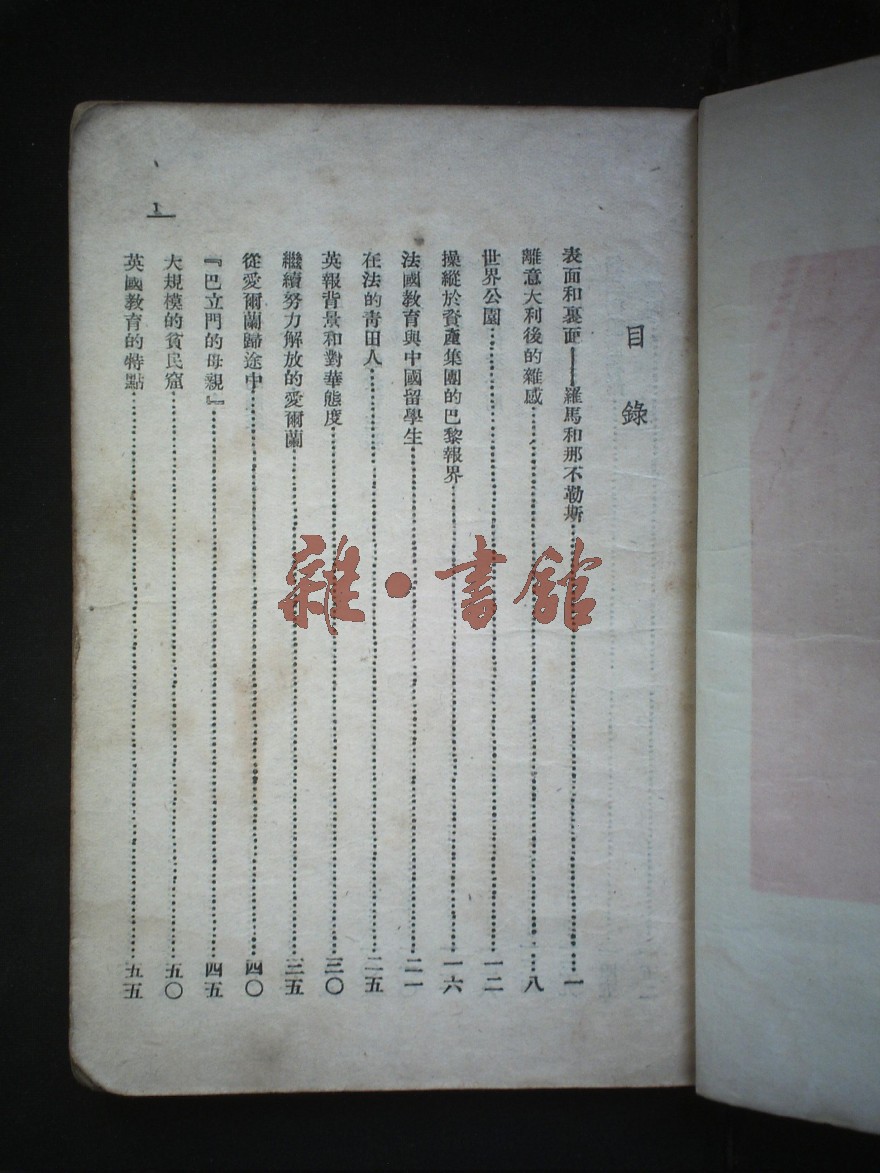 目錄
表面和裏面——羅馬和那不勒斯……一
離意大利後的雜感……八
世界公園……一二
操縱於資產集團的巴黎報界……一六
法國教育與中國留學生……二一
在法的青田人……二五
英報背景和對華態度……三〇
繼續努力解放的愛爾蘭……三五
從愛爾蘭歸途中……四〇
『巴立門的母親』……四五
大規模的貧民窟……五〇
英國教育的特點……五五
1
雜·書館